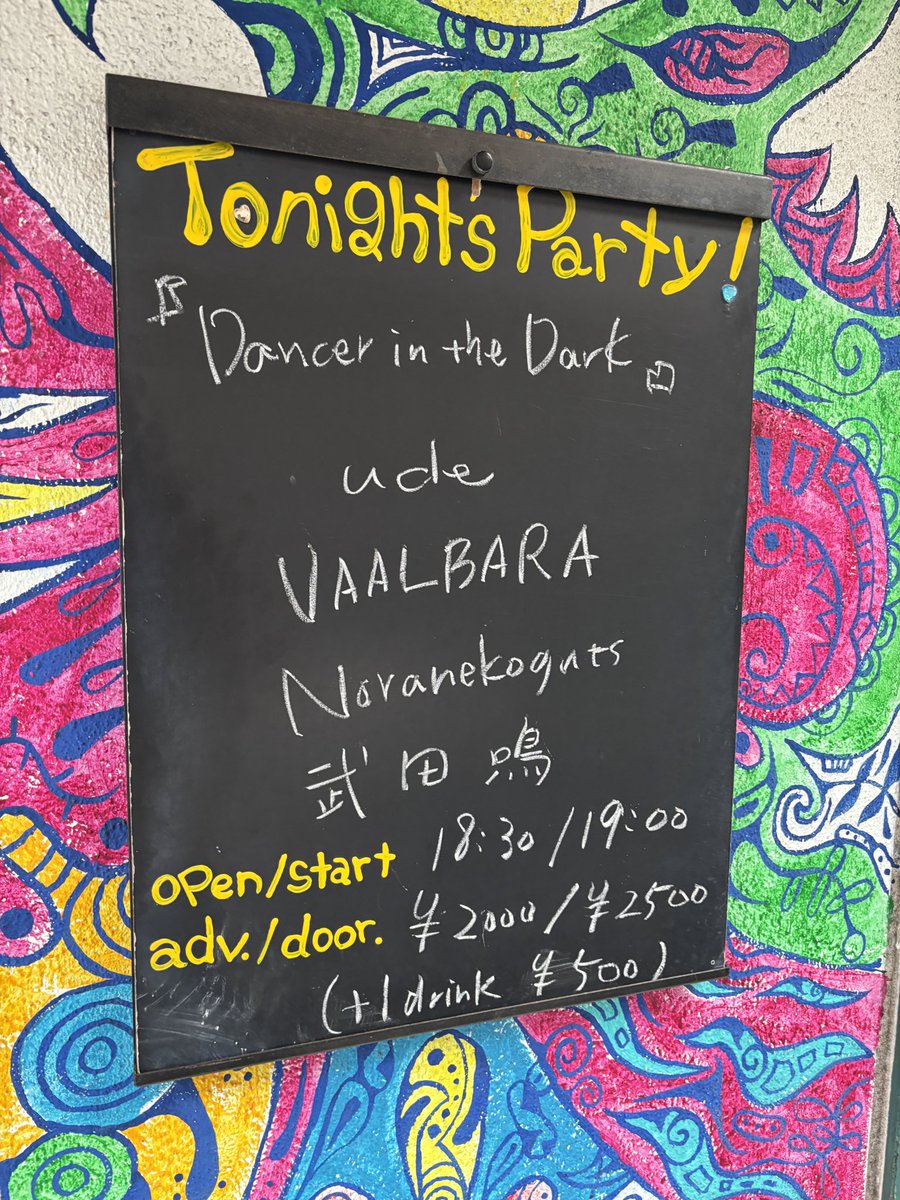 Tonight's Party!
『Dancer in the Dark』
ude
VAALBARA
Noranekoguts
武田鳴
open/start 18:30/19:00
adv./door. ¥2000/¥2500
(+1drink ¥500)